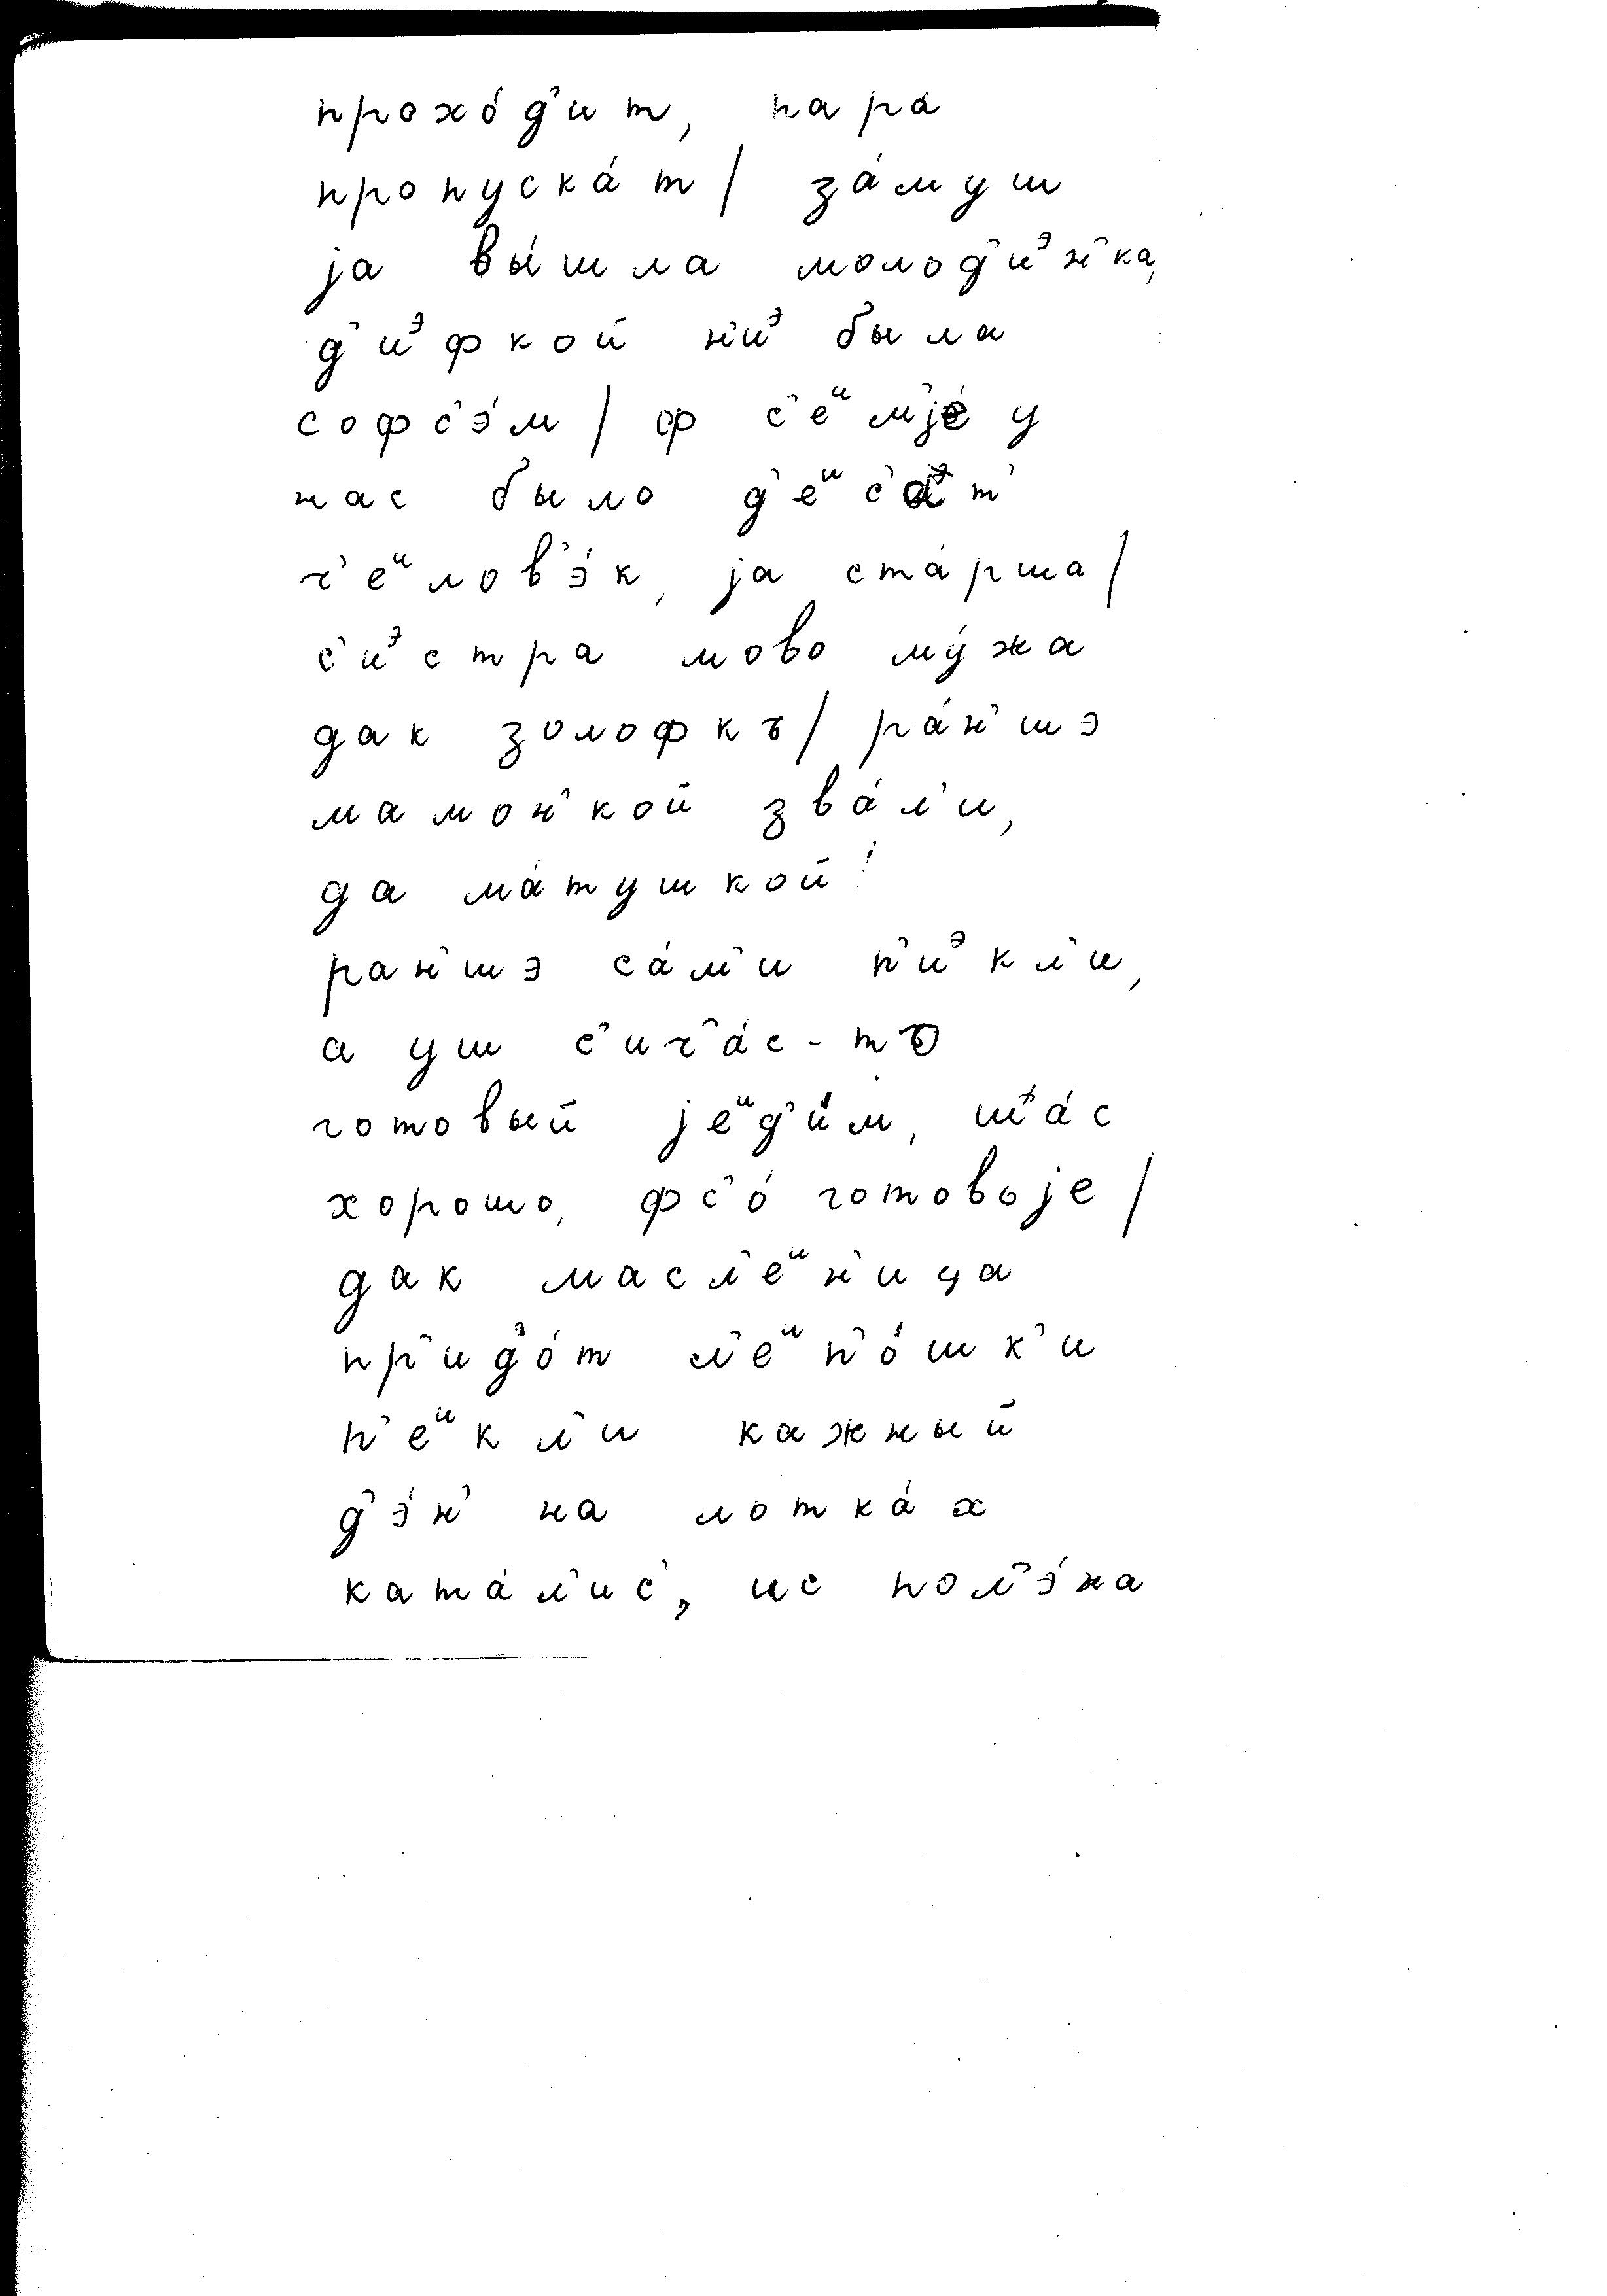 прохо́д'ит, пара
пропуска́т / за́муш
jа вы́шла молод'иᵊн'ка,
д'иᵊфкой н'иᵊ была
соф с'э́м / ф с'еᶦм'jе́ у
нас было д'еᶦс'ат'
ч'еᶦлов'э́к, jа ста́рша /
с'иᵊстра мово му́жа
дак золофкъ / ра́н'шэ
мамон'кой зва́л'и,
да ма́тушкой!
ран'шэ са́м'и п'иᵊкл'и,
а уш с'ич'а́с-то
готовый jеᶦд'и́м, ш'а́с
хорошо, фс'о́ готовоjе /
дак масл'еᶦн'ица
пр'ид'о́т л'еᶦп'о́шк'и
п'еᶦкл'и кажный
д'э́н' на лотка́х
ката́л'ис', ис пол'э́на